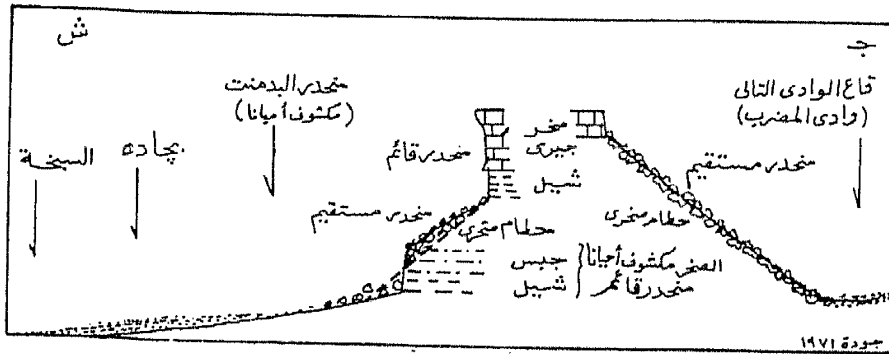 ش
جـ
قاع الوادى التالى
(وادى المضرب)
منحدر البدمنت
(مكشوف أحيانا)
بجاده
السبخة
صخر
جيرى
منحدر قائم
شيل
منحدر مستقيم
منحدر مستقيم
حطام صخرى
حطام صخرى
الصخر مكشوف أحيانا
منحدر قائم
جبس
شيل
جودة ١٩٧١